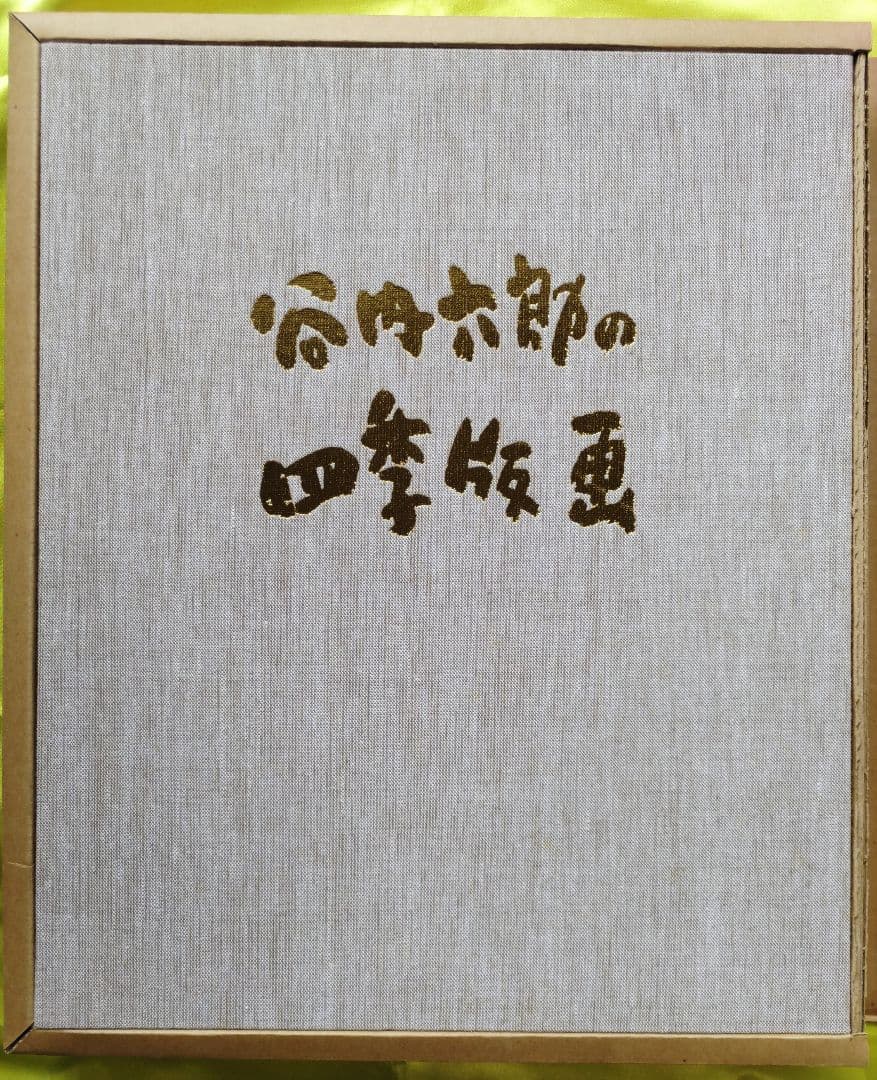 谷内六郎の
四季版画